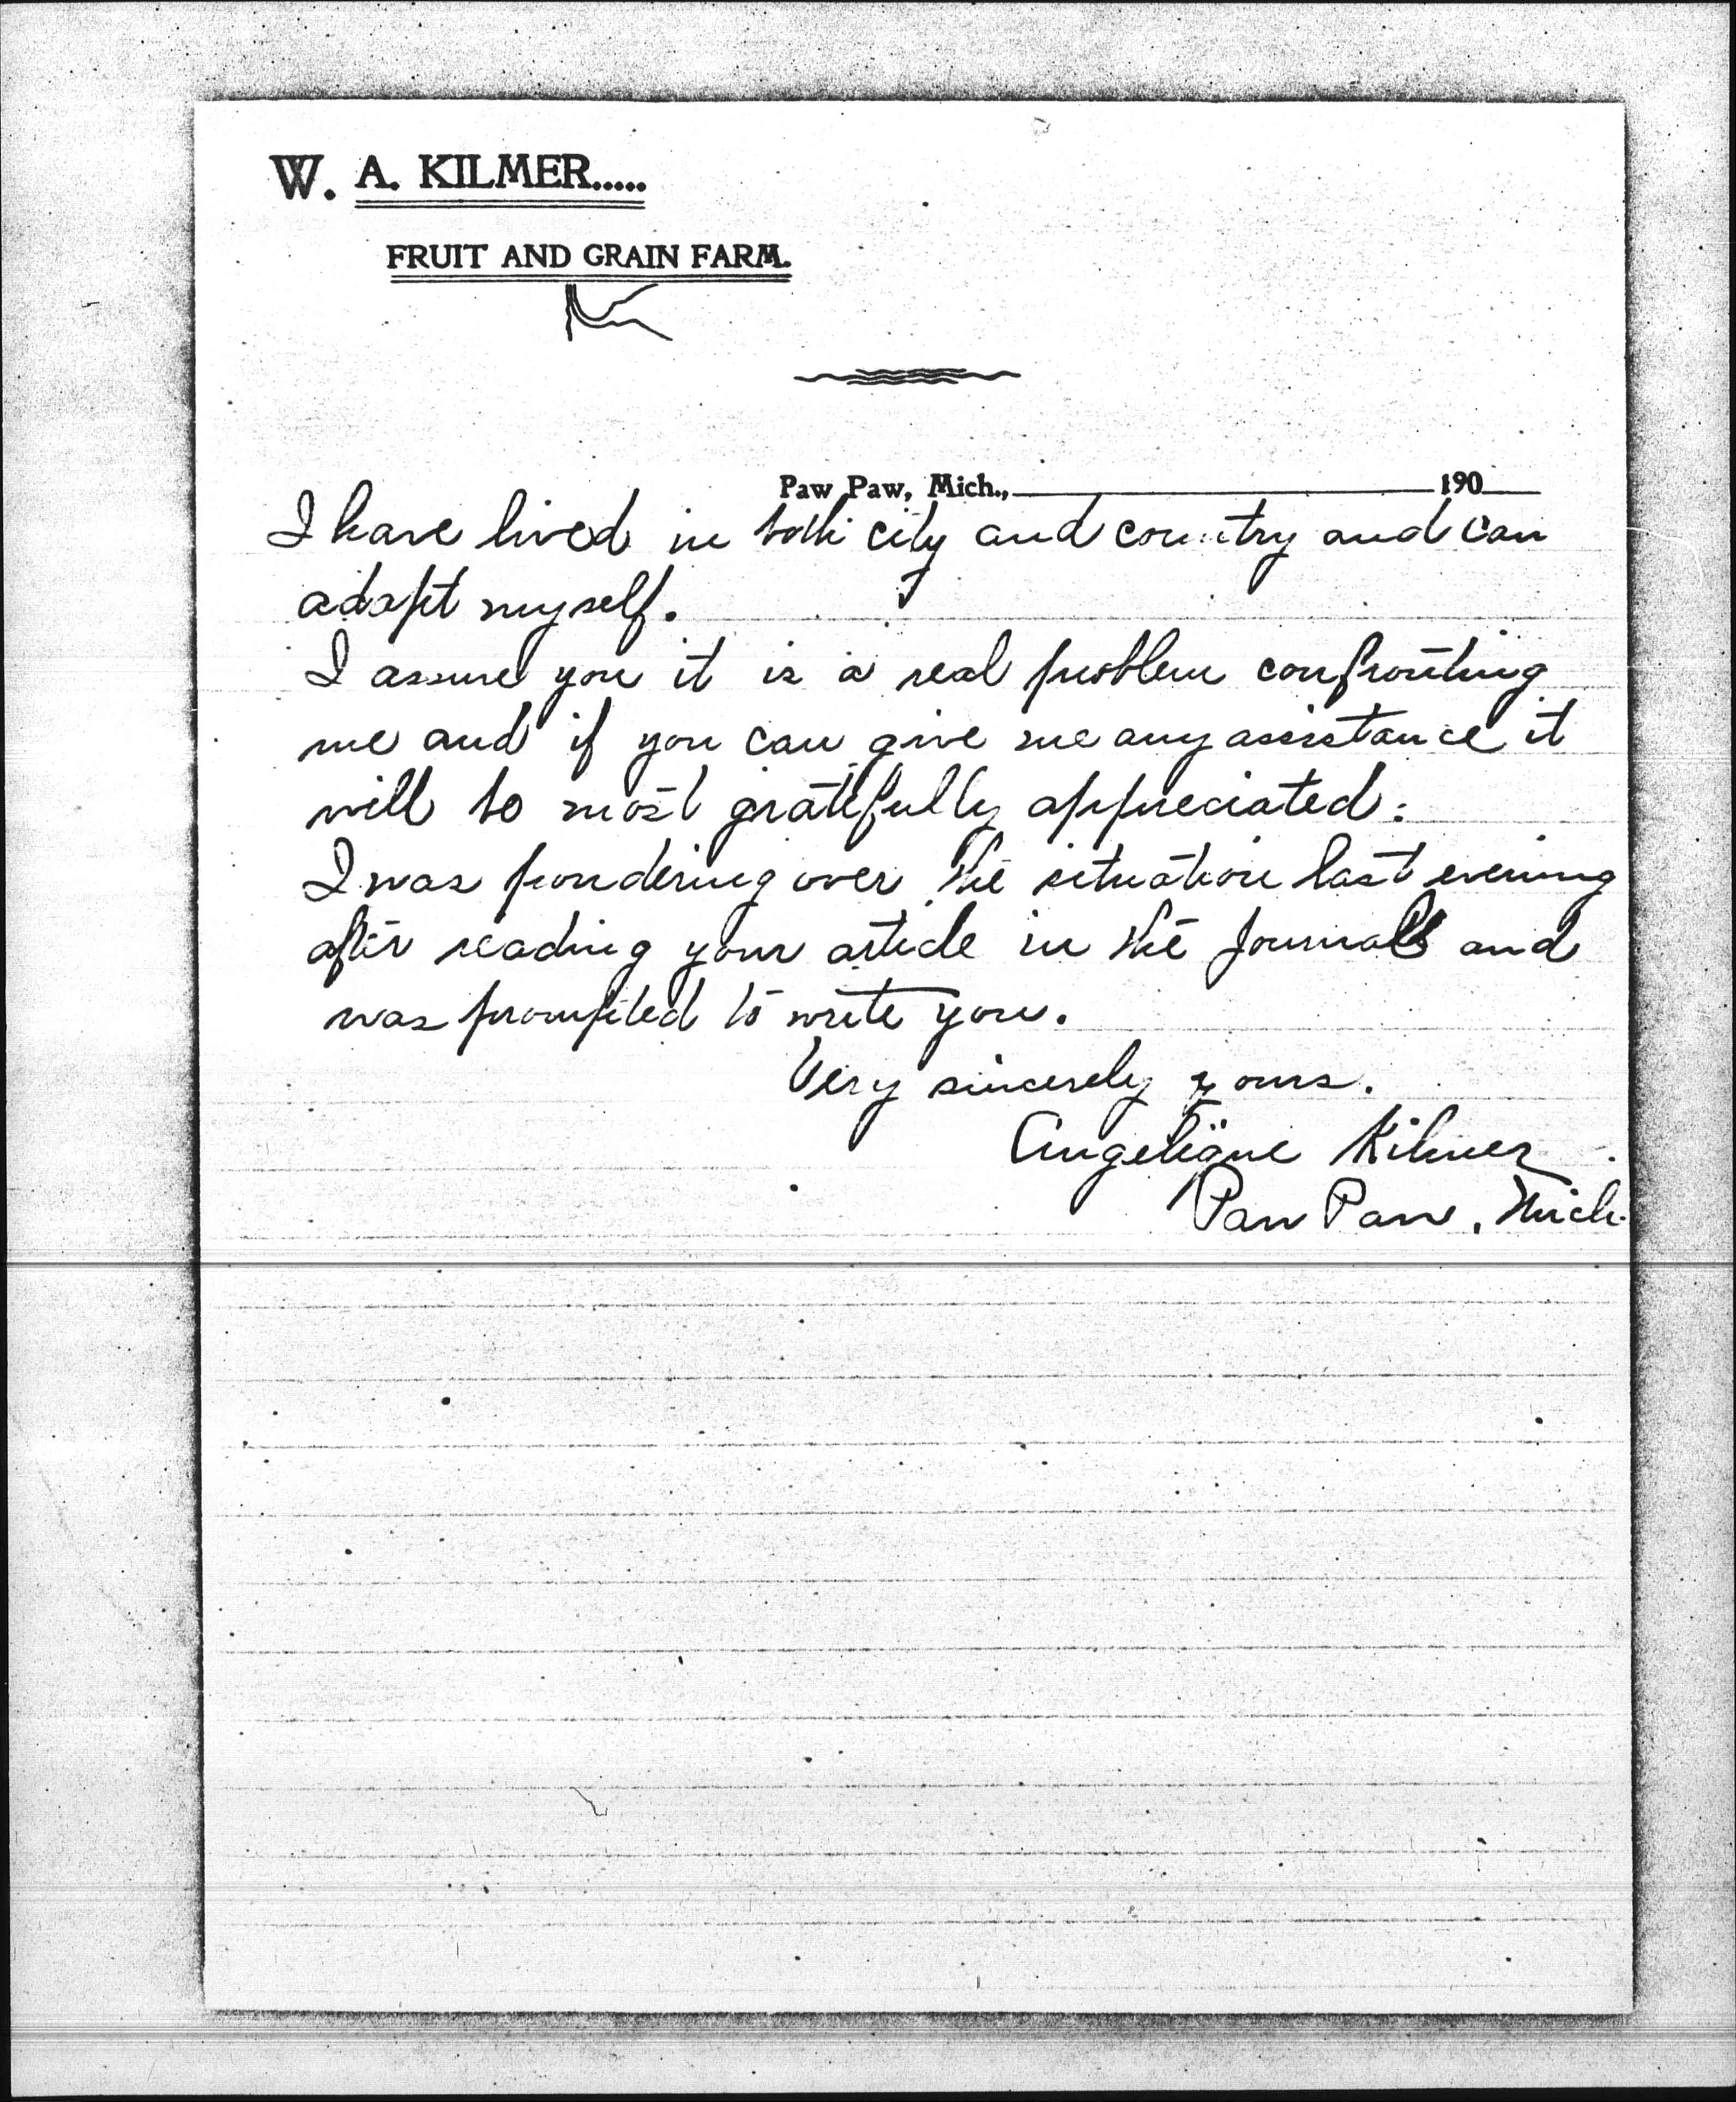 W. A. KILMER.....
FRUIT AND GRAIN FARM.
Paw Paw, Mich., 190
I have lived in both city and country and can
adapt myself.
I assure you it is a real problem confronting
me and if you can give me any assistance it
will be most gratefully appreciated.
I was pondering over the situation last evening
after reading your article in the Journal and
was prompted to write you.
Very sincerely yours.
Angelique Kilmer
Paw Paw, Mich.